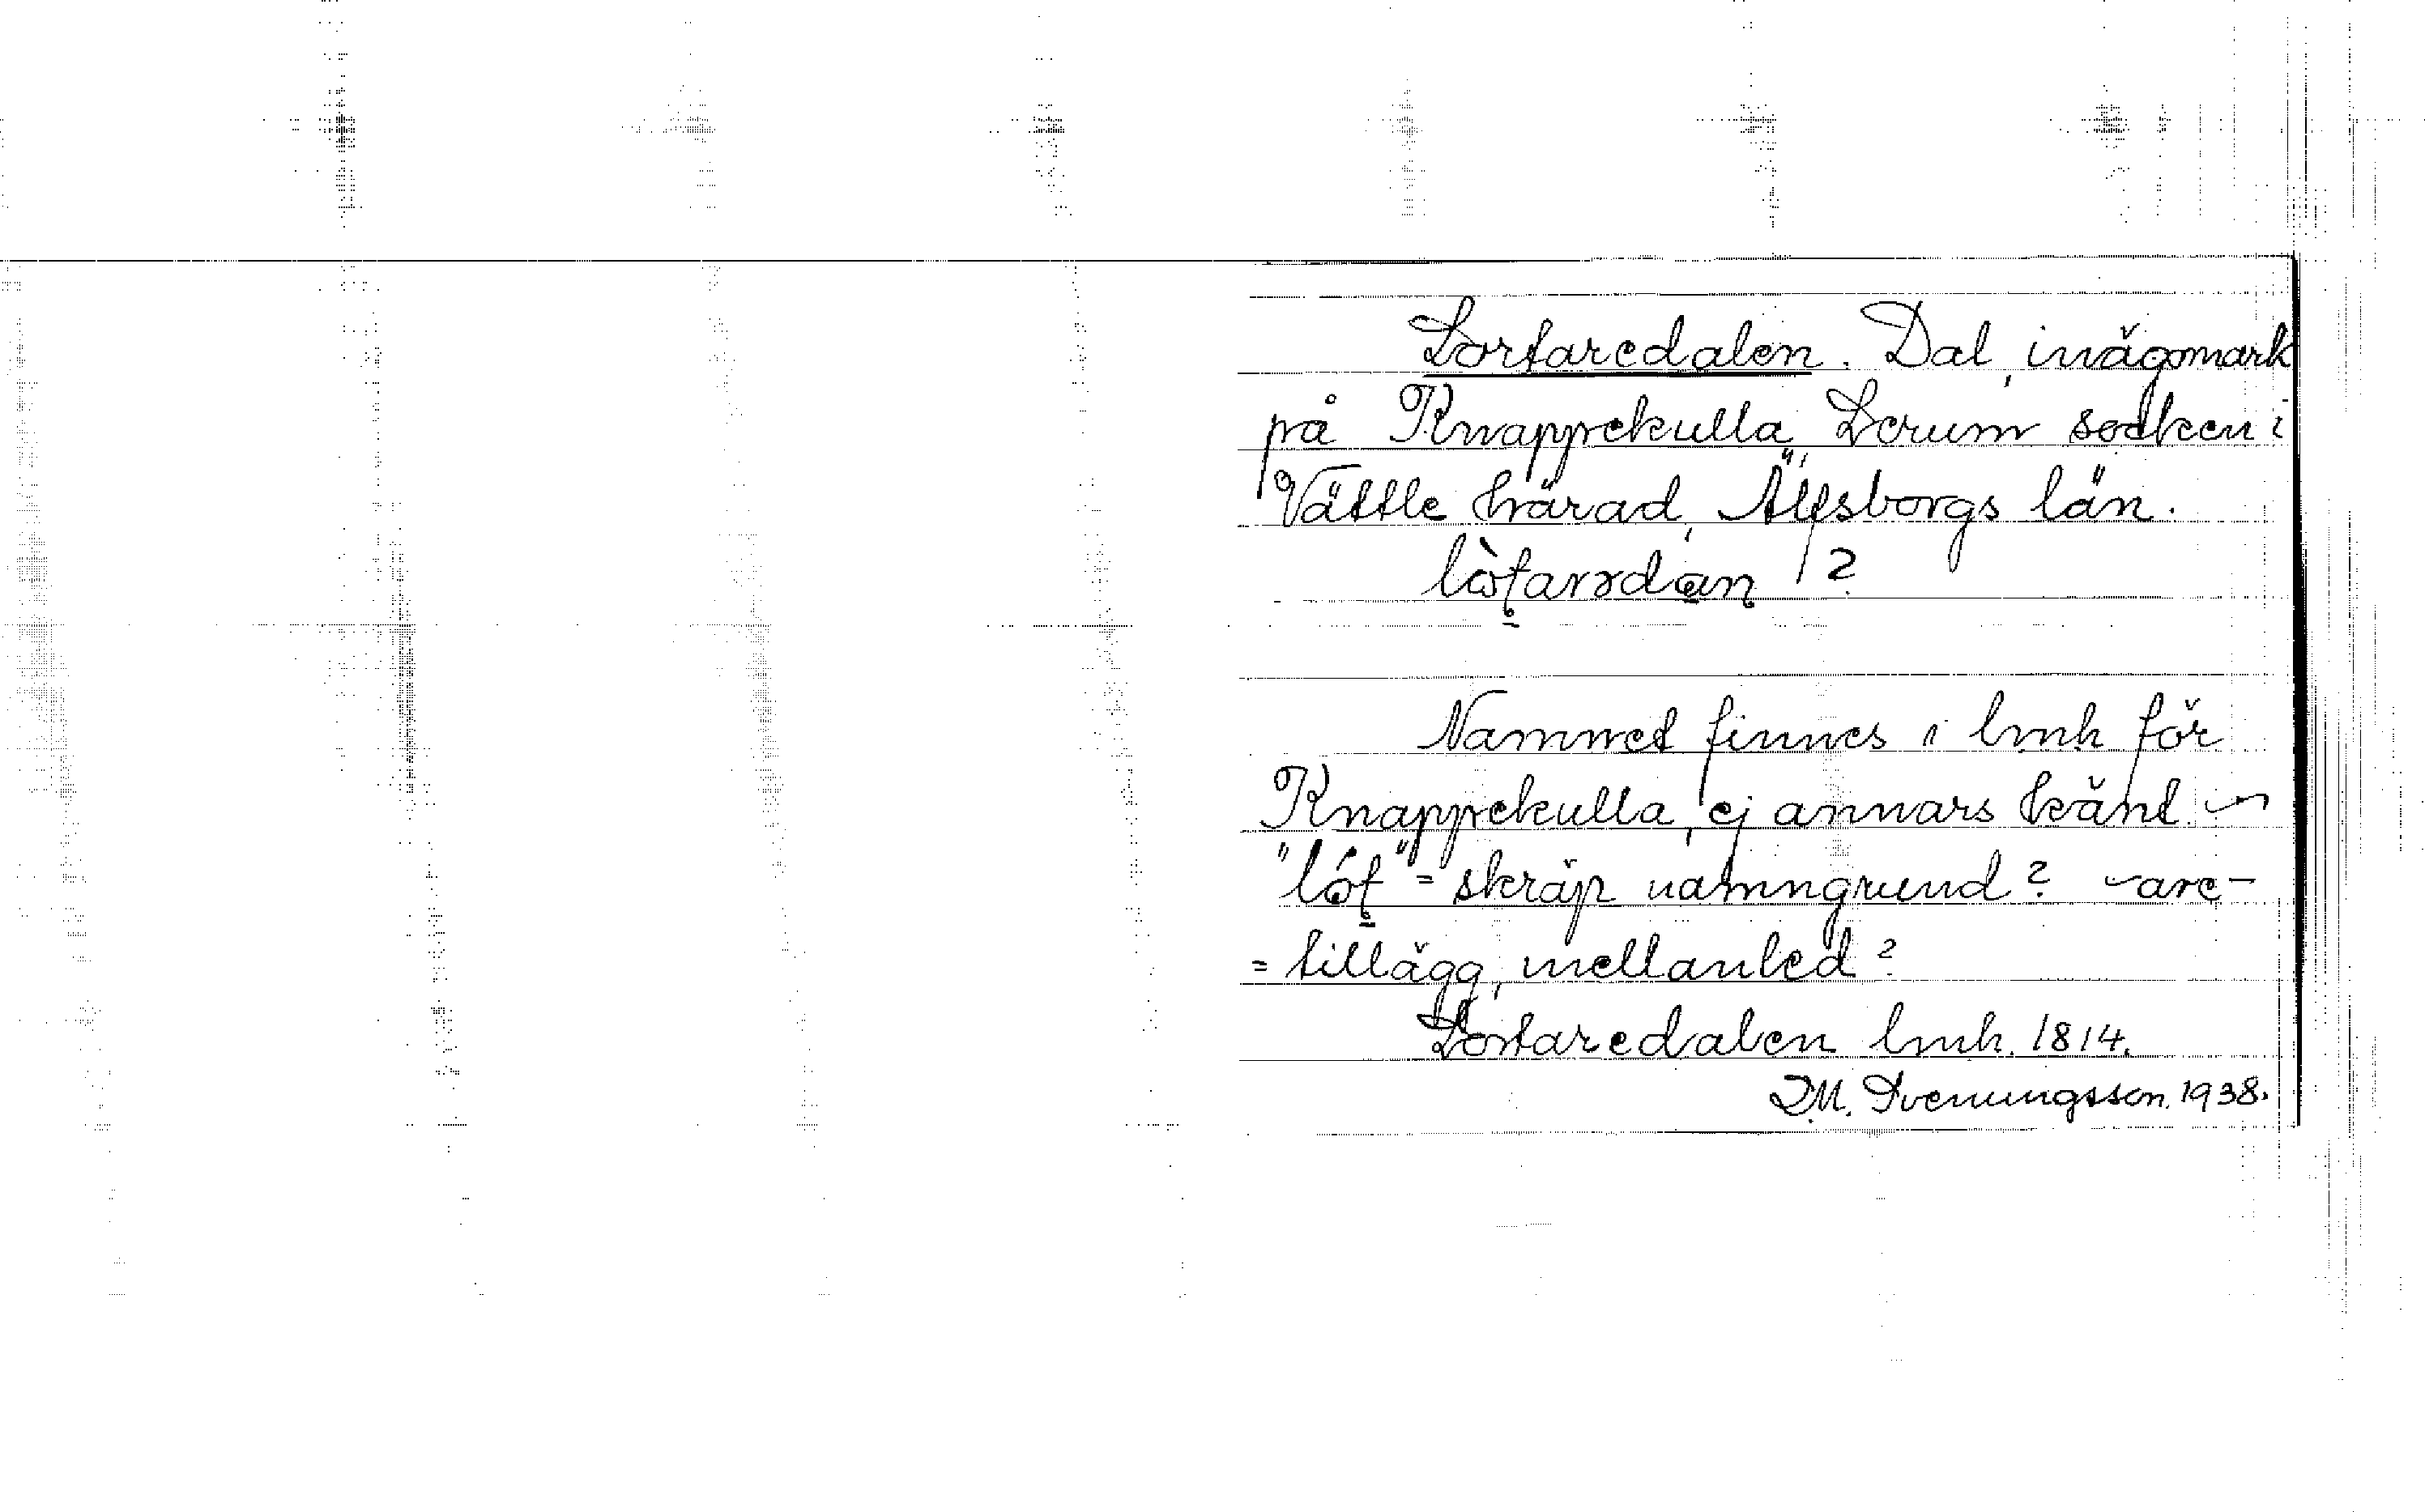 Lortaredalen. Dal, inägomark
på Knappekulla, Lerum socken i
Vättle härad, Älfsborgs län.
lòṭarədan ?
Namnet finnes i lmh för
Knappekulla, ej annars känt. –
"lóṭ" = skräp namngrund? -are-
= tillägg, mellanled?
Lortaredalen lmh. 1814.
M. Svenungsson. 1938.